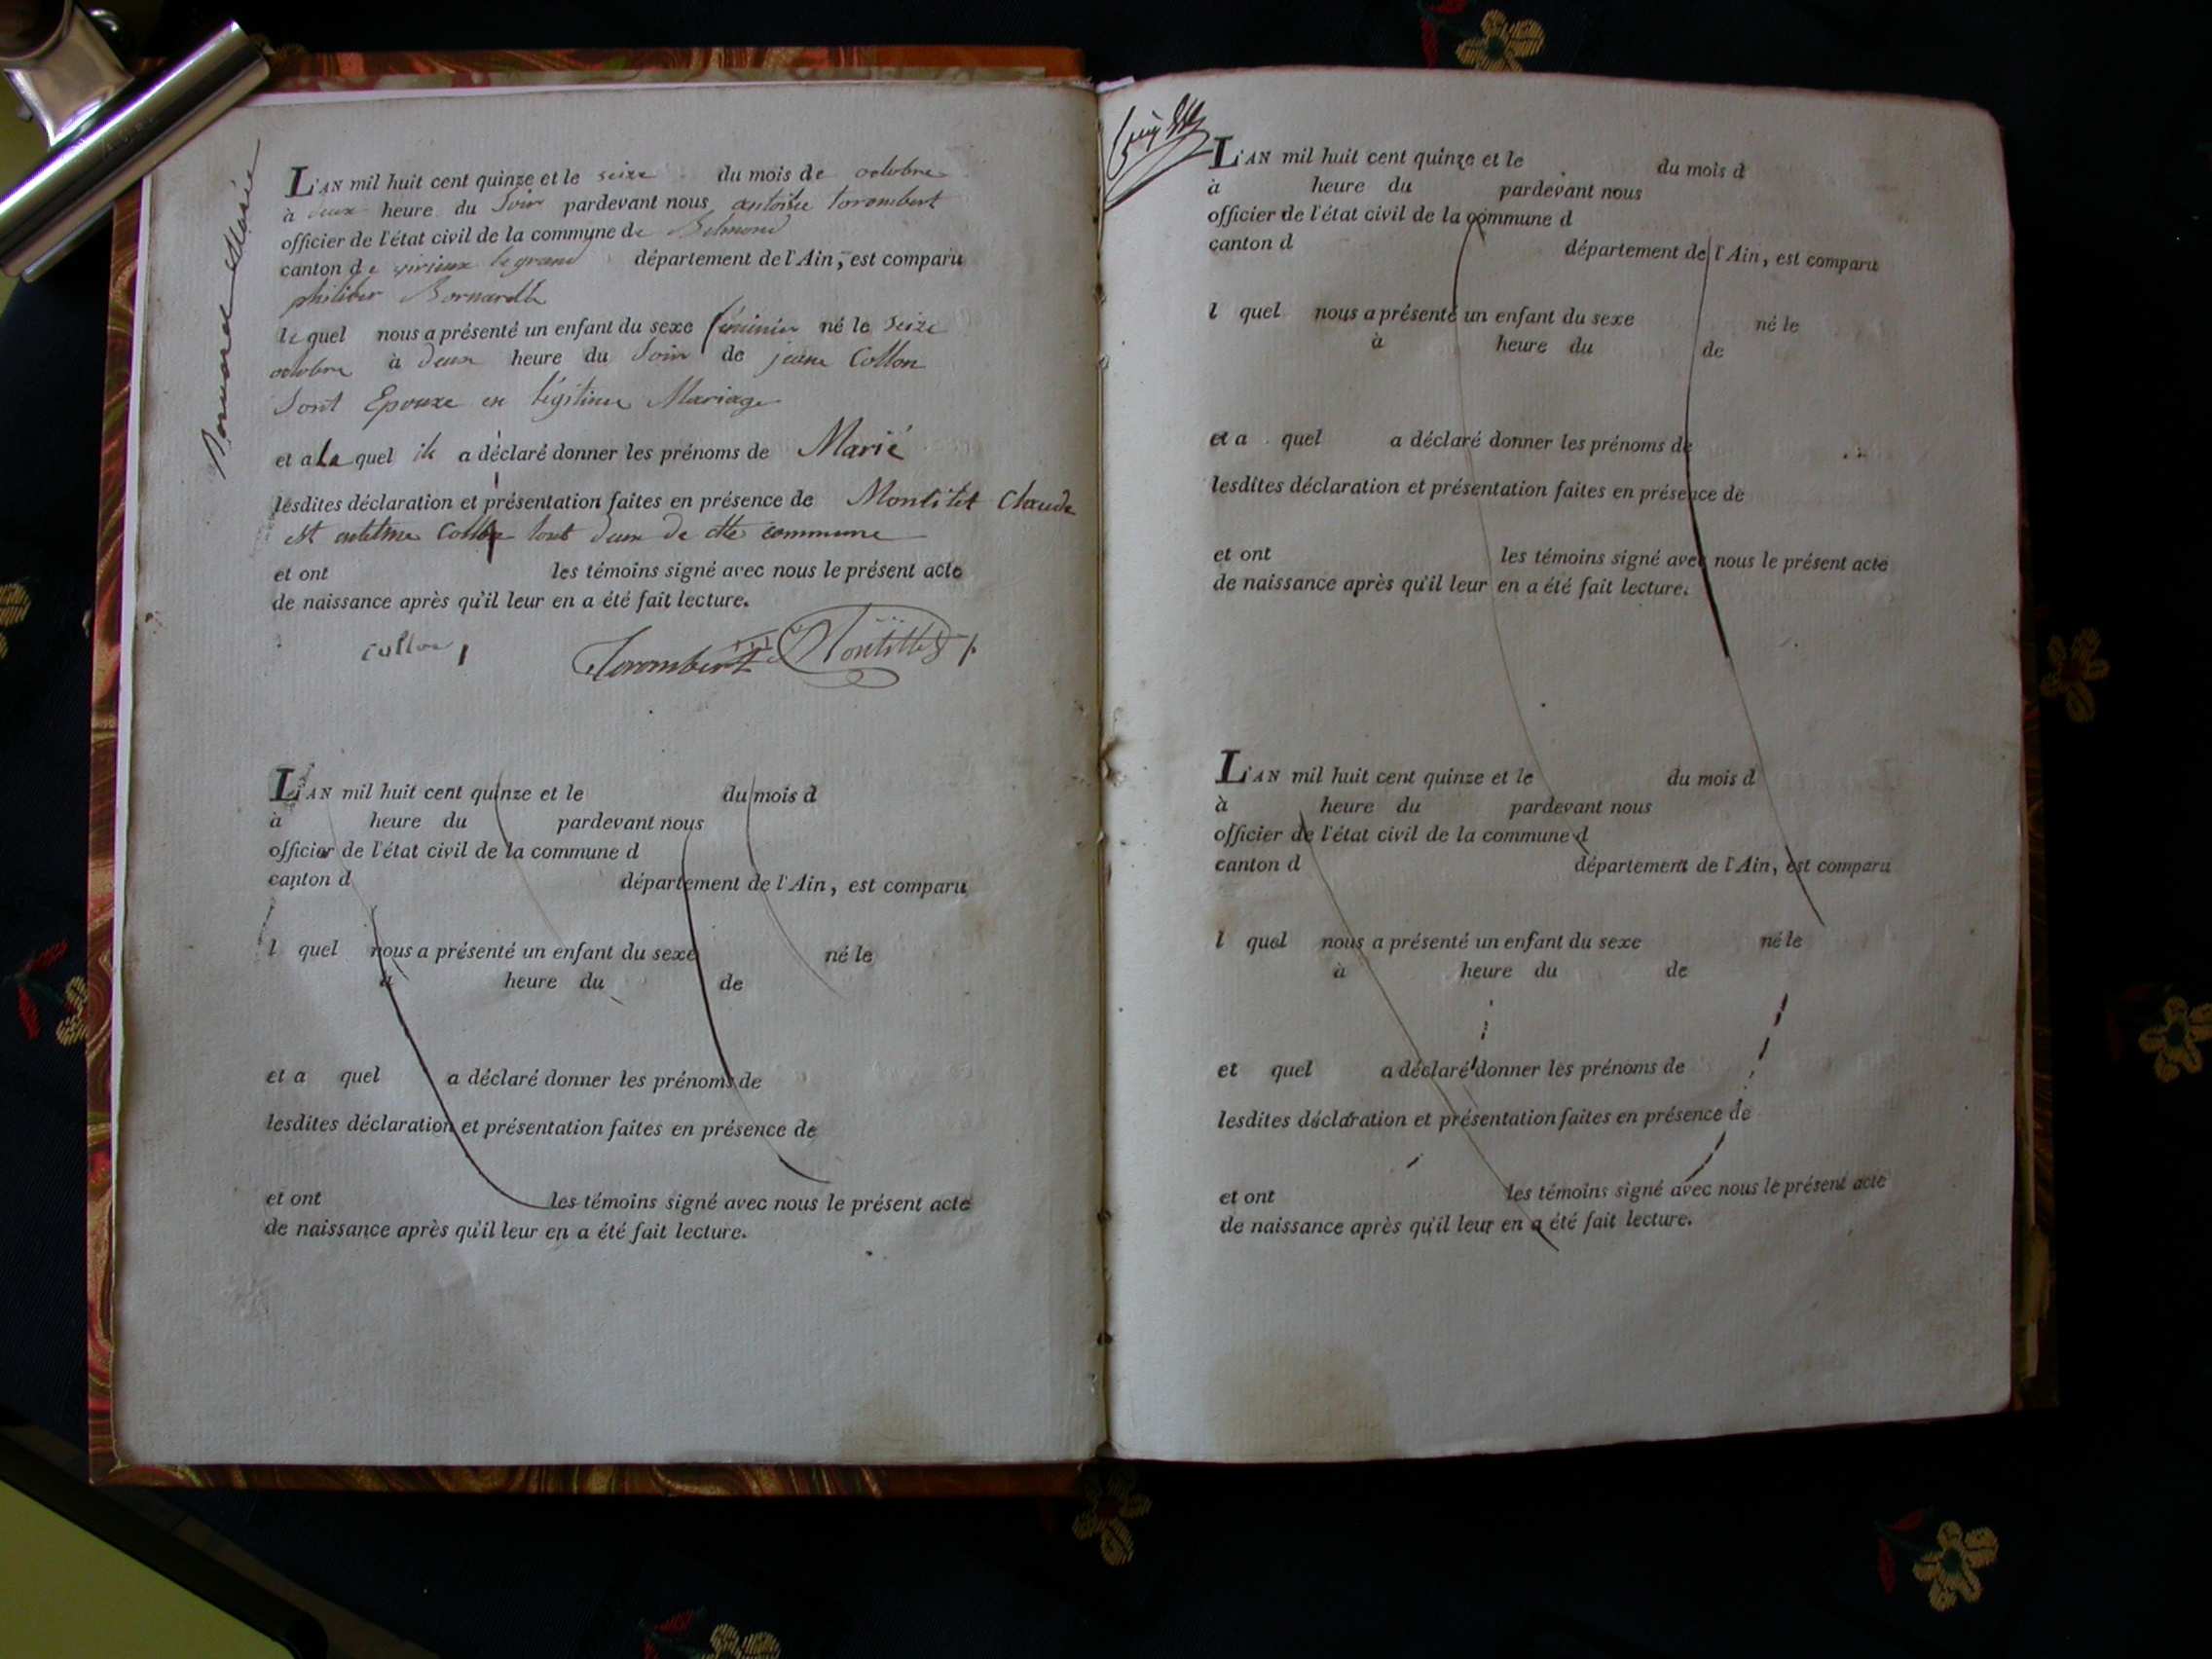 L'AN mil huit cent quinze et le seize du mois de octobre
à deux heure du Soir pardevant nous antoine torombert
officier de l'état civil de la commune de Belmond
canton de virieux legrand département de l'Ain, est comparu
philiber Bornarelle
lequel nous a présenté un enfant du sexe féminin né le seize
octobre à deux heure du Soir de jeane Collon
Sont Epouxe en légitime Mariage
et a La quel il a déclaré donner les prénoms de Marié
lesdites déclaration et présentation faites en présence de Montilet Claude
et Collon tout deux de cette commune
et ont les témoins signé avec nous le présent acte
de naissance après qu'il leur en a été fait lecture.
collon Torombert Montillet
L'AN mil huit cent quinze et le du mois d
à heure du pardevant nous
officier de l'état civil de la commune d
canton d département de l'Ain, est comparu
l quel nous a présenté un enfant du sexe né le
à heure du de
et a quel a déclaré donner les prénoms de
lesdites déclaration et présentation faites en présence de
et ont les témoins signé avec nous le présent acte
de naissance après qu'il leur en a été fait lecture.
L'AN mil huit cent quinze et le du mois d
à heure du pardevant nous
officier de l'état civil de la commune d
canton d département de l'Ain, est comparu
l quel nous a présenté un enfant du sexe né le
à heure du de
et a quel a déclaré donner les prénoms de
lesdites déclaration et présentation faites en présence de
et ont les témoins signé avec nous le présent acte
de naissance après qu'il leur en a été fait lecture.
L'AN mil huit cent quinze et le du mois d
à heure du pardevant nous
officier de l'état civil de la commune d
canton d département de l'Ain, est comparu
l quel nous a présenté un enfant du sexe né le
à heure du de
et quel a déclaré donner les prénoms de
lesdites déclaration et présentation faites en présence de
et ont les témoins signé avec nous le présent acte
de naissance après qu'il leur en a été fait lecture.